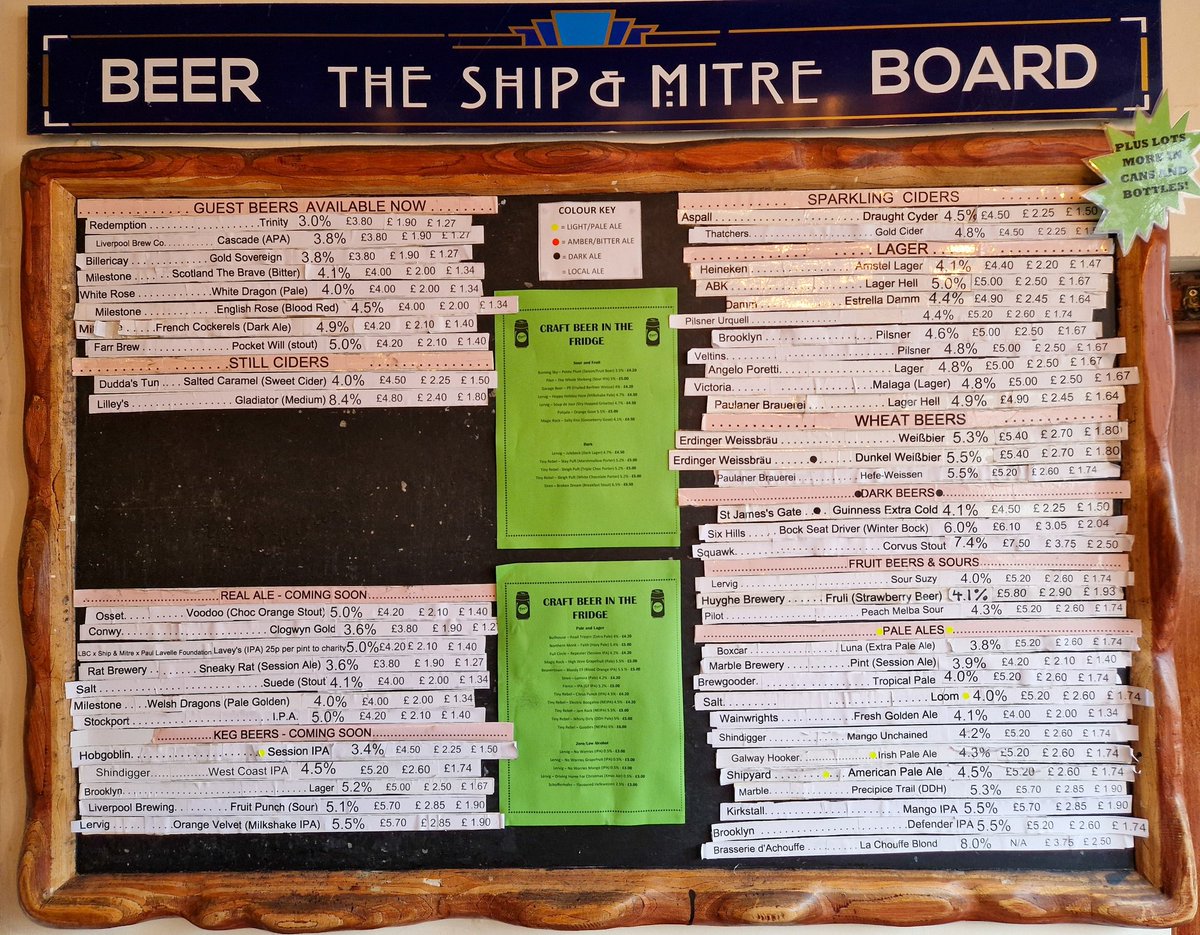 BEER THE SHIP & MITRE BOARD
PLUS LOTS
MORE IN
CANS AND
BOTTLES!
GUEST BEERS AVAILABLE NOW
Redemption Trinity 3.0% £3.80 £1.90 £1.27
Liverpool Brew Co. Cascade (APA) 3.8% £3.80 £1.90 £1.27
Billericay Gold Sovereign 3.8% £3.80 £1.90 £1.27
Milestone Scotland The Brave (Bitter) 4.1% £4.00 £2.00 £1.34
White Rose White Dragon (Pale) 4.0% £4.00 £2.00 £1.34
Milestone English Rose (Blood Red) 4.5% £4.00 £2.00 £1.34
French Cockerels (Dark Ale) 4.9% £4.20 £2.10 £1.40
Farr Brew Pocket Will (stout) 5.0% £4.20 £2.10 £1.40
STILL CIDERS
Dudda's Tun Salted Caramel (Sweet Cider) 4.0% £4.50 £2.25 £1.50
Lilley's Gladiator (Medium) 8.4% £4.80 £2.40 £1.80
REAL ALE - COMING SOON
Osset. Voodoo (Choc Orange Stout) 5.0% £4.20 £2.10 £1.40
Conwy. Clogwyn Gold 3.6% £3.80 £1.90 £1.2
LBC x Ship & Mitre x Paul Lavelle Foundation Lavey's (IPA) 25p per pint to charity 5.0% £4.20 £2.10 £1.40
Rat Brewery Sneaky Rat (Session Ale) 3.6% £3.80 £1.90 £1.27
Salt Suede (Stout 4.1% £4.00 £2.00 £1.34
Milestone Welsh Dragons (Pale Golden) 4.0% £4.00 £2.00 £1.34
Stockport I.P.A. 5.0% £4.20 £2.10 £1.40
KEG BEERS - COMING SOON
Hobgoblin. Session IPA 3.4% £4.50 £2.25 £1.50
Shindigger West Coast IPA 4.5% £5.20 £2.60 £1.74
Brooklyn Lager 5.2% £5.00 £2.50 £1.67
Liverpool Brewing. Fruit Punch (Sour) 5.1% £5.70 £2.85 £1.90
Lervig Orange Velvet (Milkshake IPA) 5.5% £5.70 £2.85 £1.90
COLOUR KEY
= LIGHT/PALE ALE
= AMBER/BITTER ALE
= DARK ALE
= LOCAL ALE
CRAFT BEER IN THE
FRIDGE
Sour and Fruit
Dark
CRAFT BEER IN THE
FRIDGE
Pale and Lager
Zero/Low Alcohol
SPARKLING CIDERS
Aspall Draught Cyder 4.5% £4.50 £2.25 £1.50
Thatchers. Gold Cider 4.8% £4.50 £2.25
LAGER
Heineken Amstel Lager 4.1% £4.40 £2.20 £1.47
ABK Lager Hell 5.0% £5.00 £2.50 £1.67
Damm Estrella Damm 4.4% £4.90 £2.45 £1.64
Pilsner Urquell 4.4% £5.20 £2.60 £1.74
Brooklyn Pilsner 4.6% £5.00 £2.50 £1.67
Veltins. Pilsner 4.8% £5.00 £2.50 £1.67
Angelo Poretti. Lager 4.8% £5.00 £2.50 £1.67
Victoria. Malaga (Lager) 4.8% £5.00 £2.50 £1.67
Paulaner Brauerei Lager Hell 4.9% £4.90 £2.45 £1.64
WHEAT BEERS
Erdinger Weissbräu Weißbier 5.3% £5.40 £2.70 £1.80
Erdinger Weissbräu Dunkel Weißbier 5.5% £5.40 £2.70 £1.80
Paulaner Brauerei Hefe-Weissen 5.5% £5.20 £2.60 £1.74
DARK BEERS
St James's Gate Guinness Extra Cold 4.1% £4.50 £2.25 £1.50
Six Hills Bock Seat Driver (Winter Bock) 6.0% £6.10 £3.05 £2.04
Squawk. Corvus Stout 7.4% £7.50 £3.75 £2.50
FRUIT BEERS & SOURS
Lervig Sour Suzy 4.0% £5.20 £2.60 £1.74
Huyghe Brewery Fruli (Strawberry Beer) 4.1% £5.80 £2.90 £1.93
Pilot Peach Melba Sour 4.3% £5.20 £2.60 £1.74
PALE ALES
Boxcar Luna (Extra Pale Ale) 3.8% £5.20 £2.60 £1.74
Marble Brewery Pint (Session Ale) 3.9% £4.20 £2.10 £1.40
Brewgooder. Tropical Pale 4.0% £5.20 £2.60 £1.74
Salt. Loom 4.0% £5.20 £2.60 £1.74
Wainwrights Fresh Golden Ale 4.1% £4.00 £2.00 £1.34
Shindigger Mango Unchained 4.2% £5.20 £2.60 £1.74
Galway Hooker Irish Pale Ale 4.3% £5.20 £2.60 £1.74
Shipyard American Pale Ale 4.5% £5.20 £2.60 £1.74
Marble. Precipice Trail (DDH) 5.3% £5.70 £2.85 £1.90
Kirkstall. Mango IPA 5.5% £5.70 £2.85 £1.90
Brooklyn Defender IPA 5.5% £5.20 £2.60 £1.74
Brasserie d'Achouffe La Chouffe Blond 8.0% N/A £3.75 £2.50